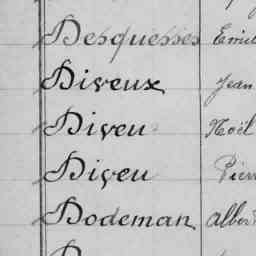 Desquesses Emil
Diveux Jean
Diveu Noël
Diveu Pierr
Dodeman Albert